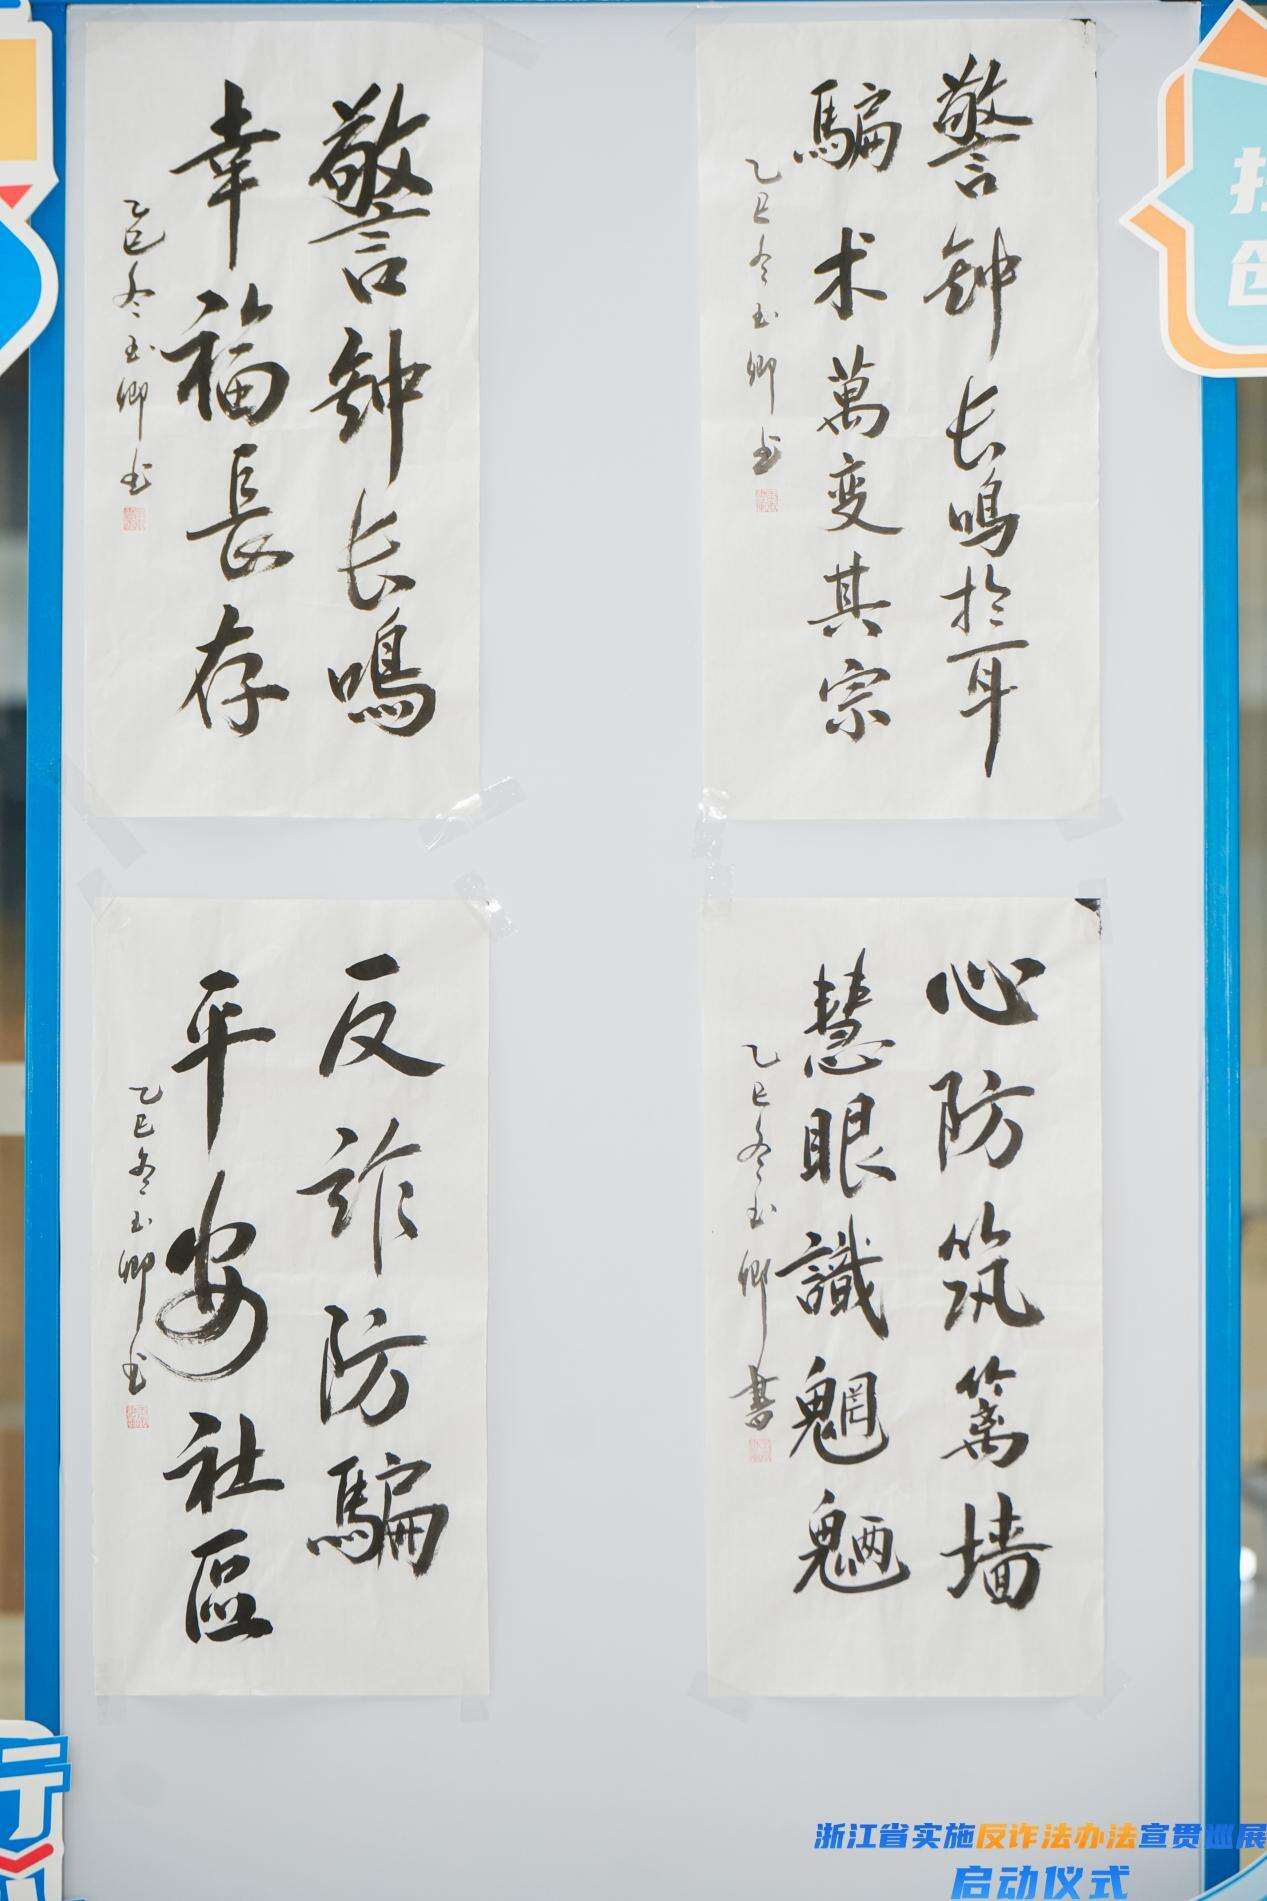 警钟长鸣於耳
騙术萬变其宗
乙巳冬玉卿书
警钟长鸣
幸福長存
乙巳冬玉卿书
心防筑篱墙
慧眼識魍魎
乙巳冬玉卿書
反詐防騙
平安社區
乙巳冬玉卿书
浙江省实施反诈法办法宣贯巡展
启动仪式
行